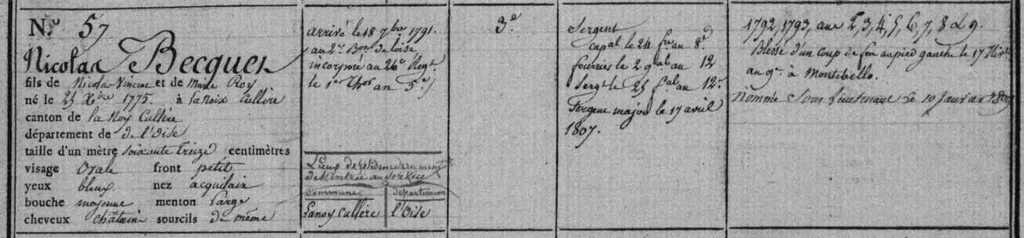 N.° 57
Nicolas Becques
fils de Nicolas Vincent et de Marie Roy
né le 25 Xbre 1775. à la Noix Cullere
canton de la Noy Cullere
département de de l'Oise
taille d'un mètre soixante treize centimètres
visage Ovale front petit
yeux bleux nez acquilain
bouche moyenne menton Large
cheveux châtain sourcils de même
arrivé le 18 7bre 1791.
au 2e Bon de l'oise
incorporé au 26e Regt
le 1er Thor an 5e
Lieux de
de l'entrée au service
Commune département
Lanoy Cullere l'Oise
3e
Sergent
Capal le 24 au 8e
fourrier le 2 au 12
Sergt le 25 au 12.
Sergent major le 17 avril
1807.
1792, 1793, aux 2, 3, 4, 5, 6, 7, 8 & 9.
Blessé d'un coup de feu au pied gauche le 17
au 9e à Montebello.
nommé Sous Lieutenant le 10 Janvier